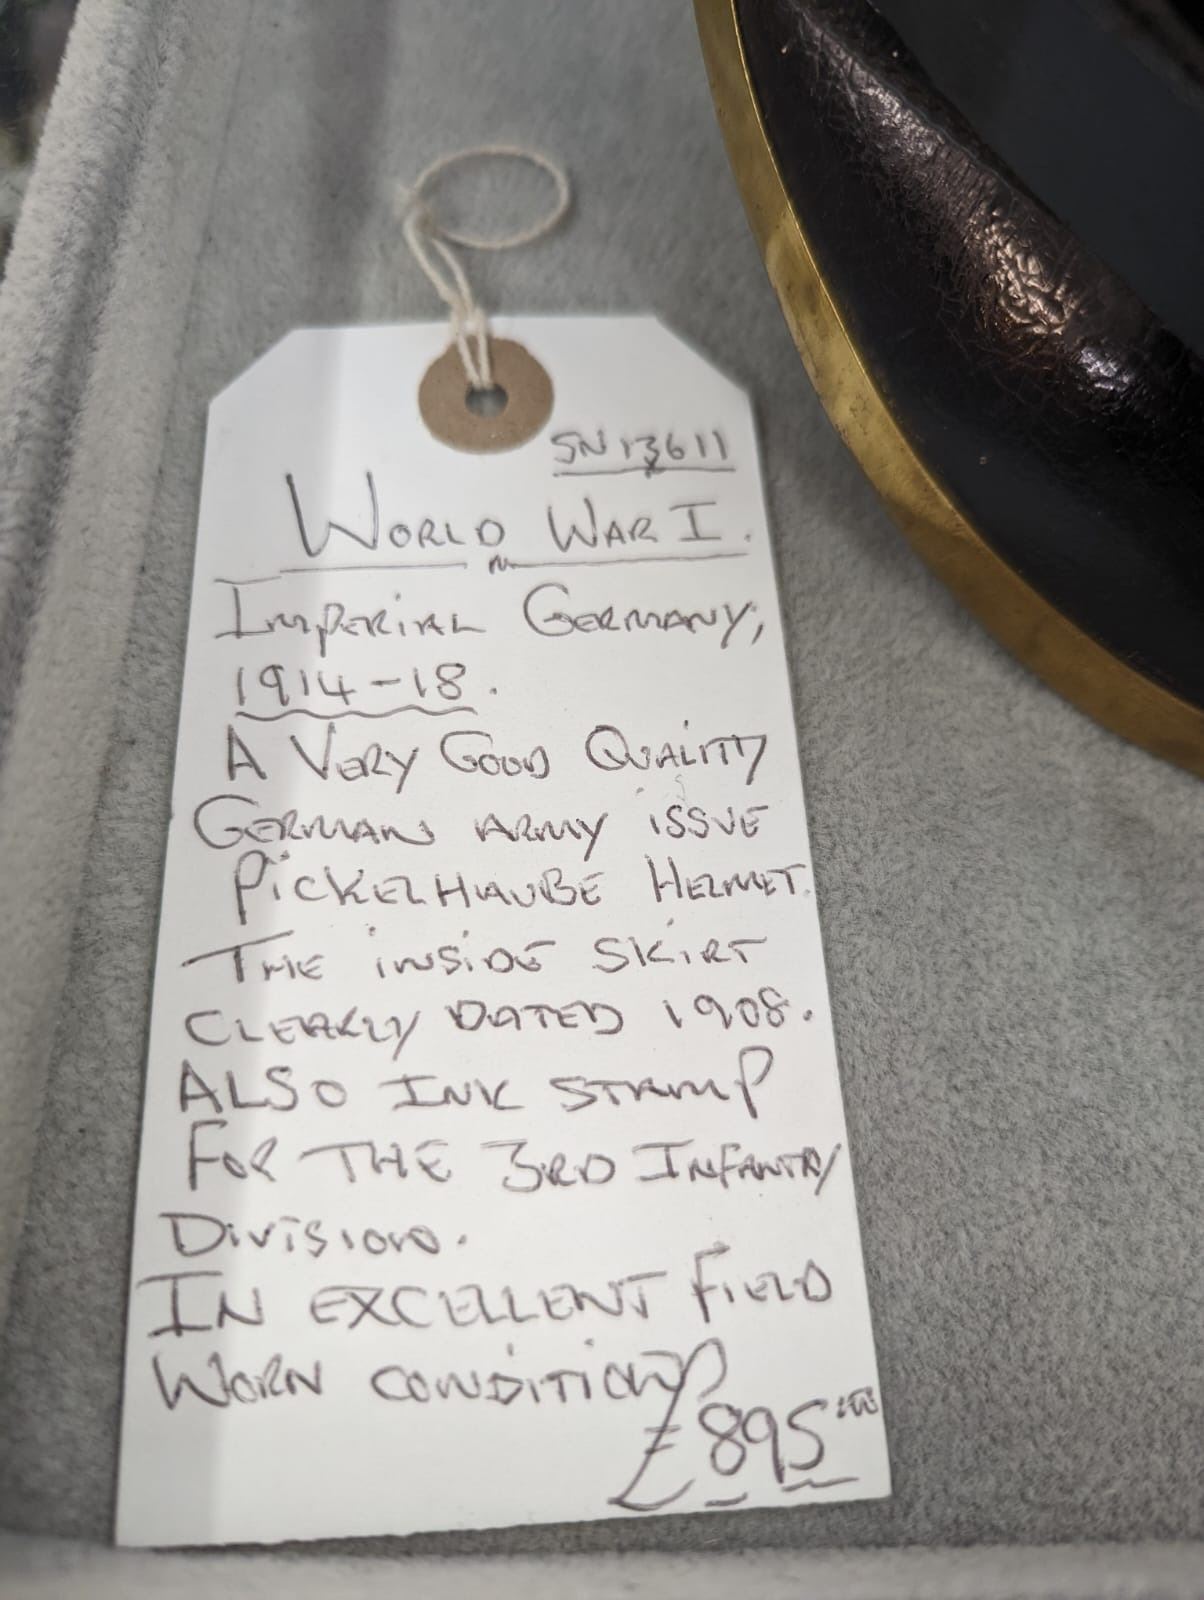 SN13611
WORLD WAR I.
IMPERIAL GERMANY,
1914-18.
A VERY GOOD QUALITY
GERMAN ARMY ISSUE
PICKELHAUBE HELMET.
THE INSIDE SKIRT
CLEARLY DATED 1908.
ALSO INK STAMP
FOR THE 3RD INFANTRY
DIVISION.
IN EXCELLENT FIELD
WORN CONDITION
£895.00